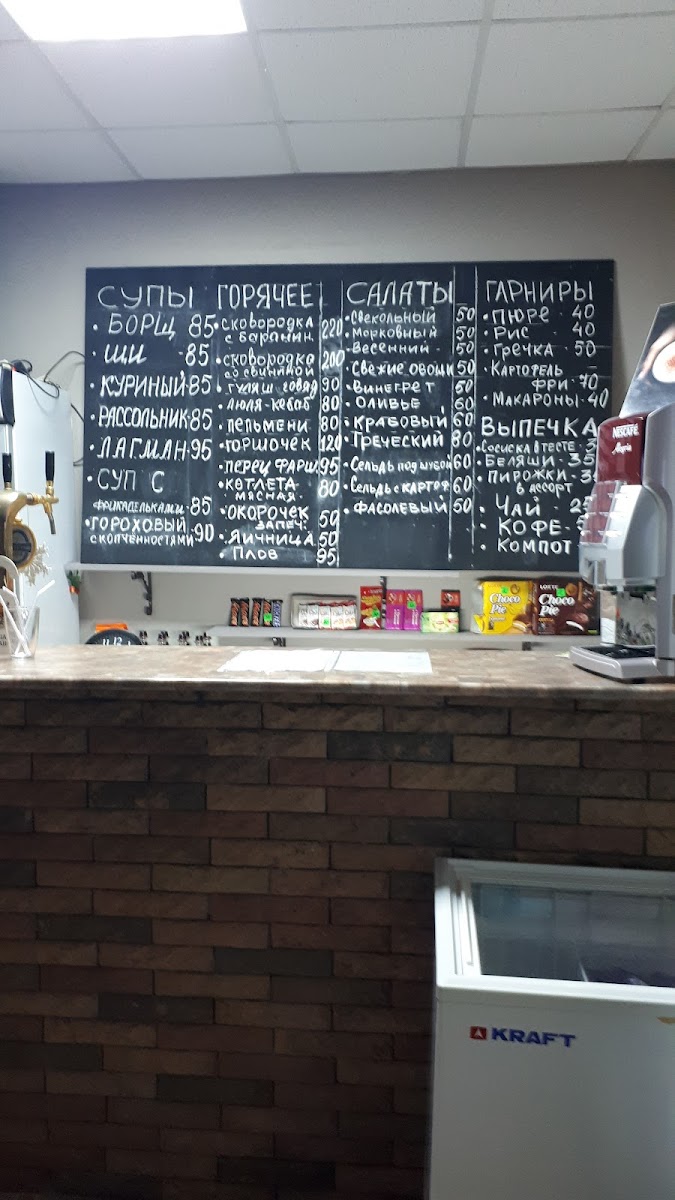 СУПЫ
• БОРЩ 85
• ЩИ -85
• КУРИНЫЙ-85
• РАССОЛЬНИК-85
• ЛАГМАН-95
• СУП С
ФРИКАДЕЛЬКАМИ-85
• ГОРОХОВЫЙ -90
С КОПЧЕННОСТЯМИ
ГОРЯЧЕЕ
• СКОВОРОДКА
С БАРАНИН. 220
• СКОВОРОДКА
СО СВИНИНОЙ 200
• ГУЛЯШ ГОВЯД 90
• ЛЮЛЯ-КЕБАБ 80
• ПЕЛЬМЕНИ 80
• ГОРШОЧЕК 120
• ПЕРЕЦ ФАРШ. 95
• КОТЛЕТА
МЯСНАЯ 80
• ОКОРОЧЕК
ЗАПЕЧ. 50
• ЯИЧНИЦА 50
• ПЛОВ 95
САЛАТЫ
• Свекольный 50
• Морковный 50
• Весенний 50
• Свежие овощи 50
• Винегрет 50
• Оливье 60
• Крабовый 60
• Греческий 80
• Сельдь под шубой 60
• Сельдь с картоф 60
• Фасолевый 50
ГАРНИРЫ
• ПЮРЕ - 40
• РИС - 40
• ГРЕЧКА - 50
• КАРТОФЕЛЬ
ФРИ - 70
• МАКАРОНЫ - 40
ВЫПЕЧКА
• Сосиска в тесте -
• БЕЛЯШИ - 35
• ПИРОЖКИ -
В АССОРТ
• ЧАЙ
• КОФЕ -
• КОМПОТ
NESCAFÉ
Alegria
Choco
Pie
LOTTE
Choco
Pie
KRAFT